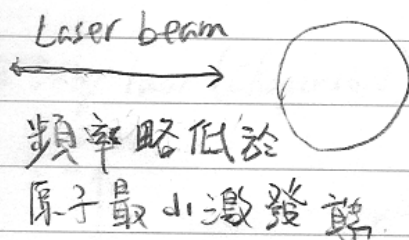 Laser beam
頻率略低於
原子最小激發態